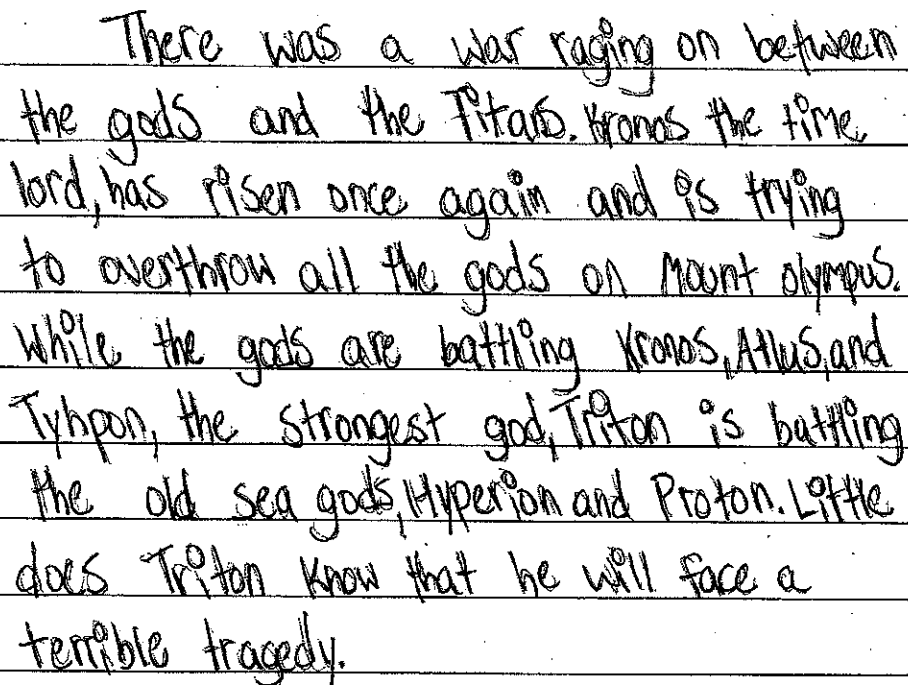 There was a war raging on between
the gods and the Titans. Kronos the time
lord, has risen once again and is trying
to overthrow all the gods on Mount olympus.
While the gods are battling Kronos, Atlus, and
Tyhpon, the strongest god, Triton is battling
the old sea gods, Hyperion and Proton. Little
does Triton know that he will face a
terrible tragedy.